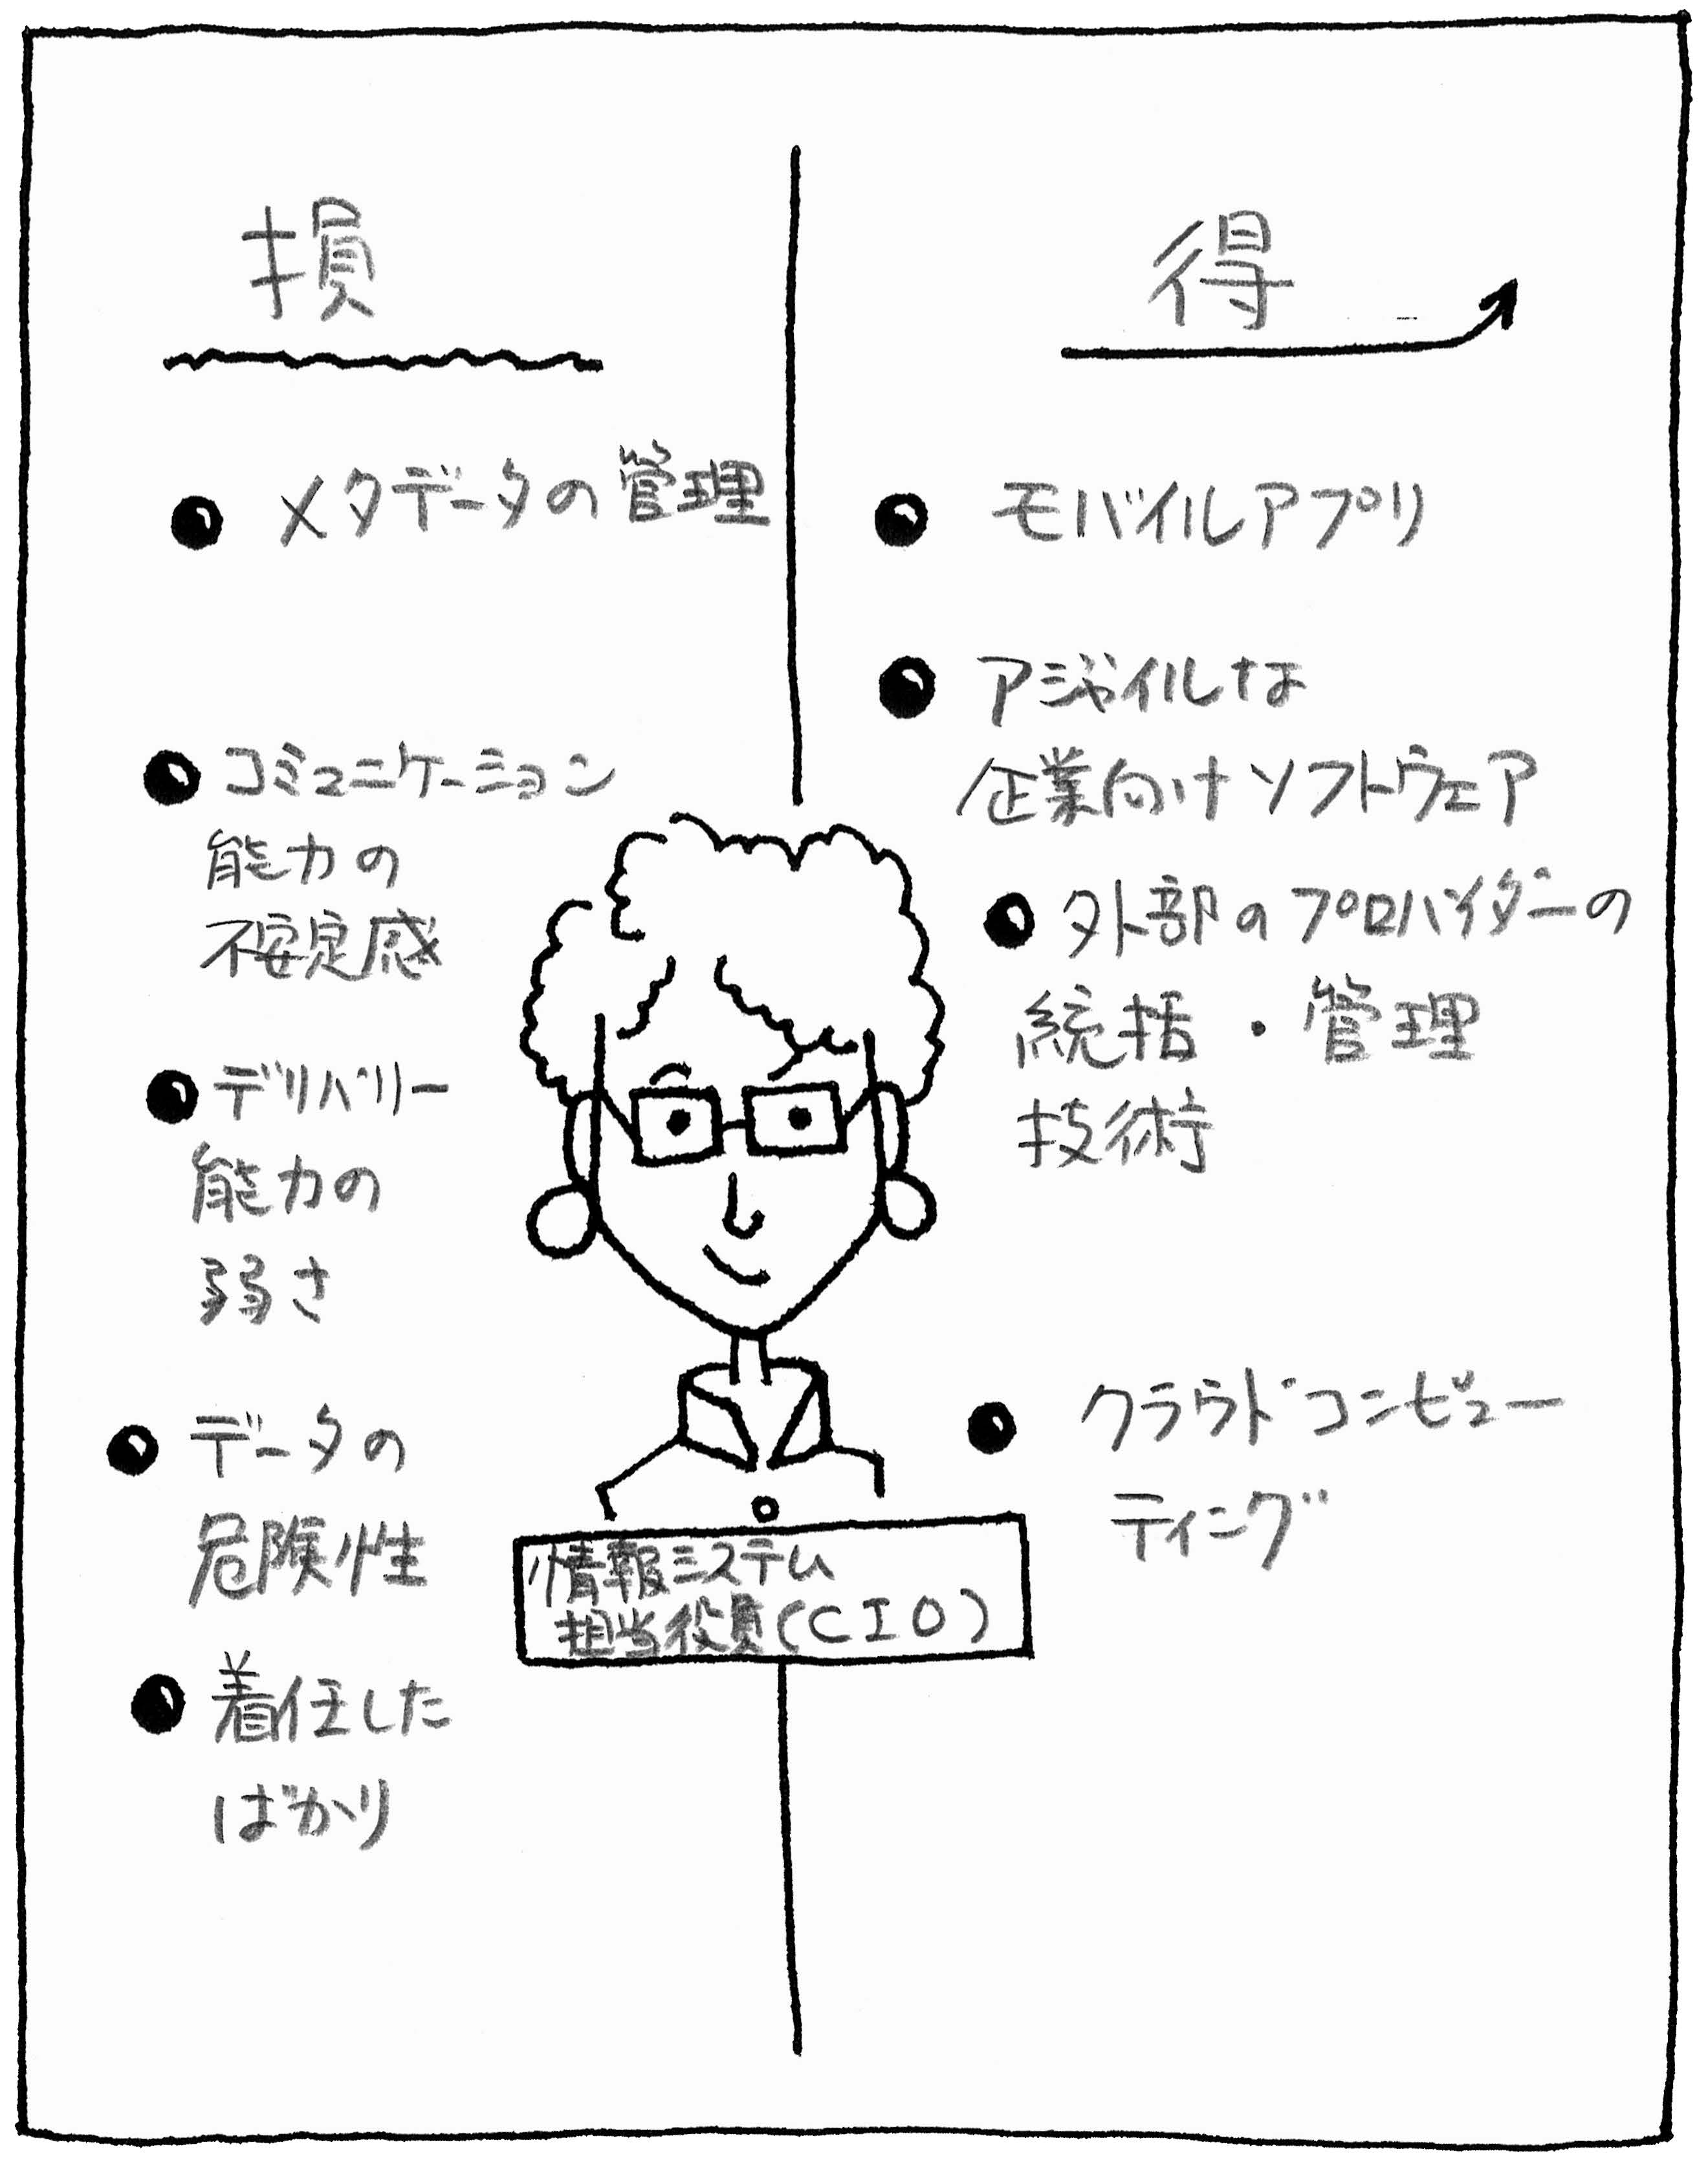 損
メタデータの管理
コミュニケーション
能力の
不安定感
デリバリー
能力の
弱さ
データの
危険性
着任した
ばかり
得
モバイルアプリ
アジャイルな
企業向けソフトウェア
外部のプロバイダーの
統括・管理
技術
クラウドコンピュー
ティング
情報システム
担当役員(CIO)